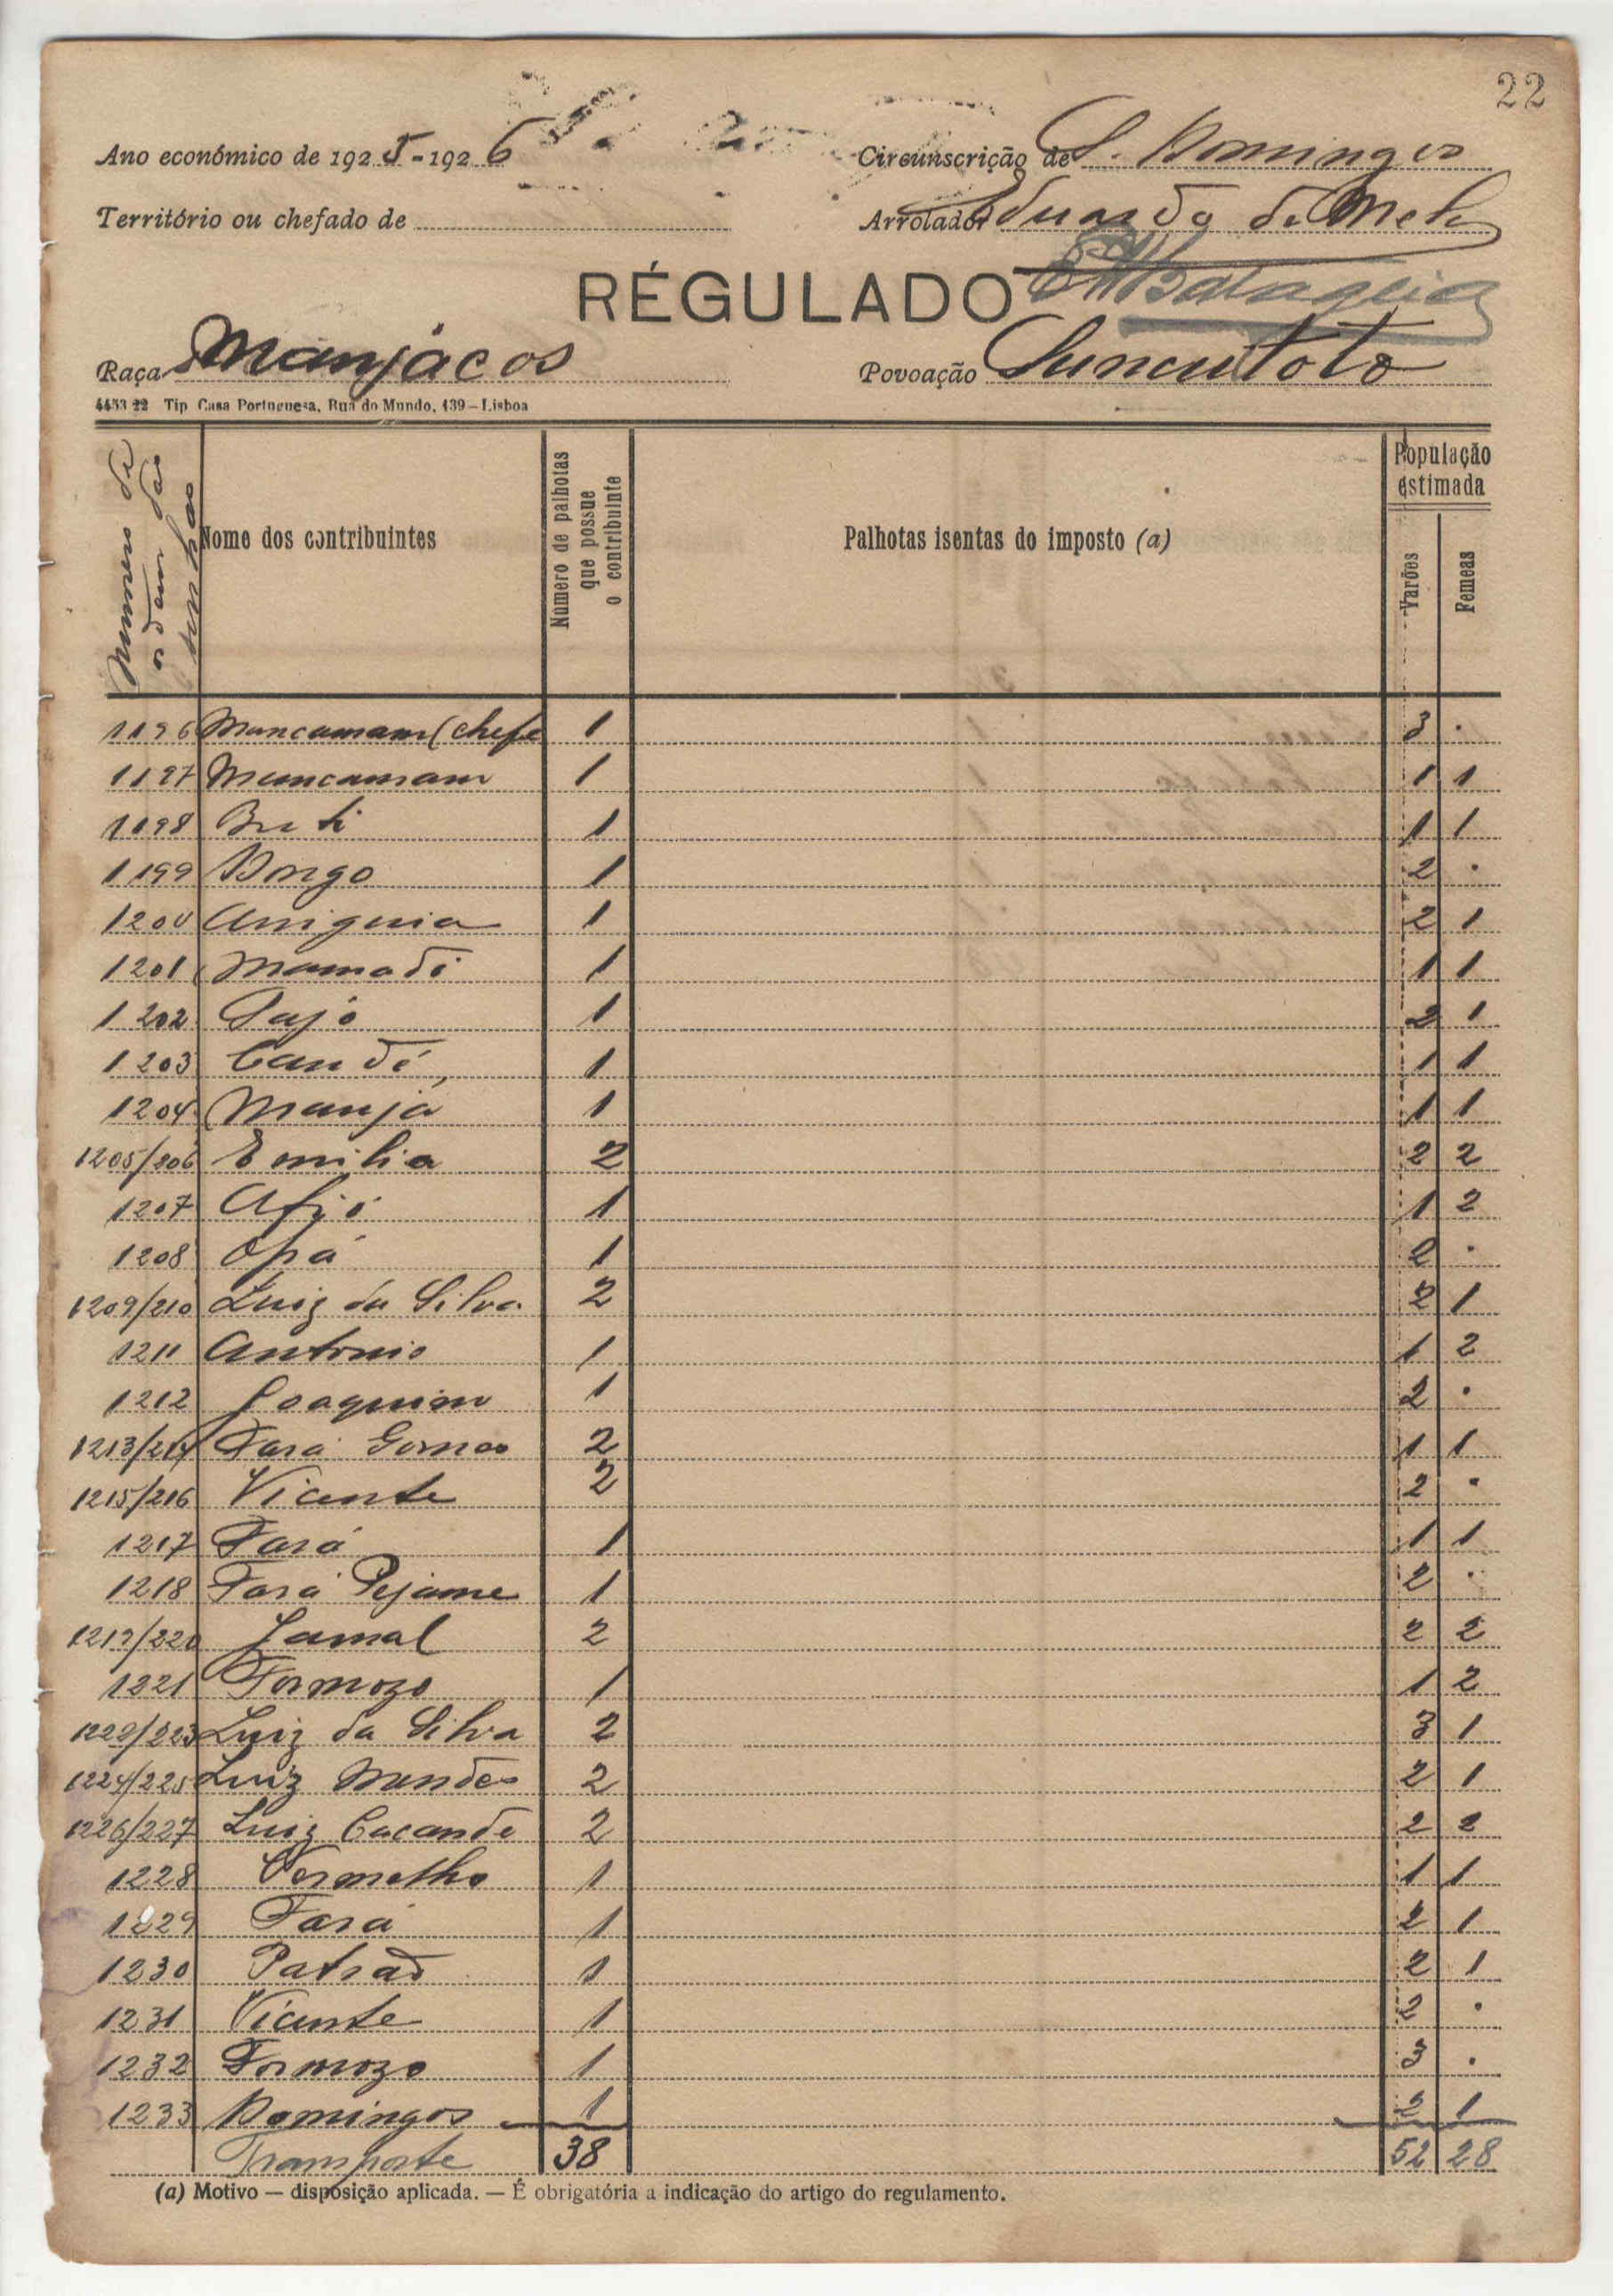 22
Ano económico de 1925-1926 Circunscrição de S. Domingos
Território ou chefado de Arrolador Eduardo de Melo
RÉGULADO
Raça Manjácos Povoação Suncutoto
4453 22 Tip Casa Portuguesa, Rua do Mundo, 139—Lisboa
Numero de ordem das senhas
Nome dos contribuintes
Número de palhotas que possue o contribuinte
Palhotas isentas do imposto (a)
População estimada
Varões
Femeas
1196 Muncamam (chefe 1 3 .
1197 Muncamam 1 1 1
1198 Buti 1 1 1
1199 Dongo 1 2 .
1200 Aniguia 1 2 1
1201 Mamadi 1 1 1
1202 Sajó 1 2 1
1203 Candé 1 1 1
1204 Manjá 1 1 1
1205/206 Emilia 2 2 2
1207 Afjó 1 1 2
1208 Opá 1 2 .
1209/210 Luiz da Silva 2 2 1
1211 Antonio 1 1 2
1212 Joaquim 1 2 .
1213/214 Fará Gomes 2 1 1
1215/216 Vicente 2 2 .
1217 Fará 1 1 1
1218 Fará Pejame 1 2 .
1219/220 Jamal 2 2 2
1221 Formozo 1 1 2
1222/223 Luiz da Silva 2 3 1
1224/225 Luiz Mendes 2 2 1
1226/227 Luiz Cacande 2 2 2
1228 Vermelho 1 1 1
1229 Fará 1 2 1
1230 Patrão 1 2 1
1231 Vicente 1 2 .
1232 Formozo 1 3 .
1233 Domingos 1 2 1
Transporte 38 52 28
(a) Motivo — disposição aplicada. — É obrigatória a indicação do artigo do regulamento.